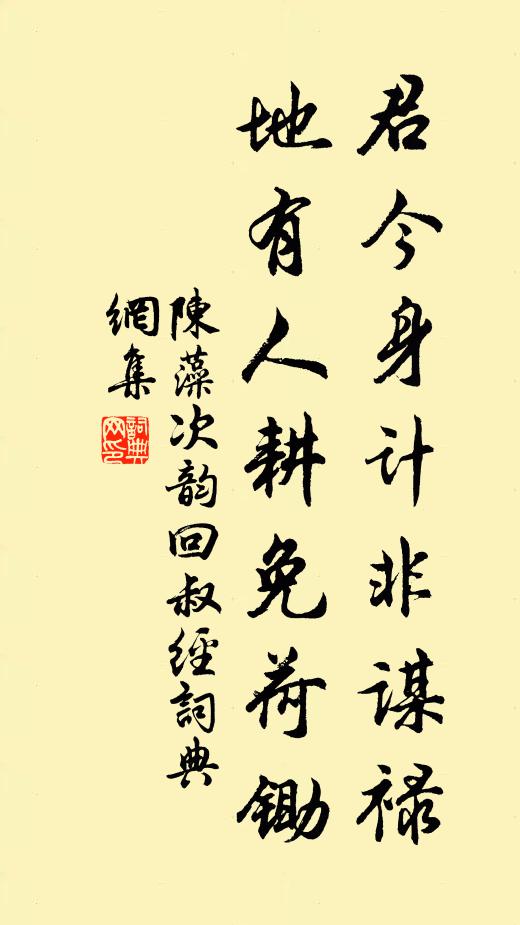 君今身計非謀禄
地有人耕免荷鋤
陳藻次韵回叔經詞典
網集
詞典
网印